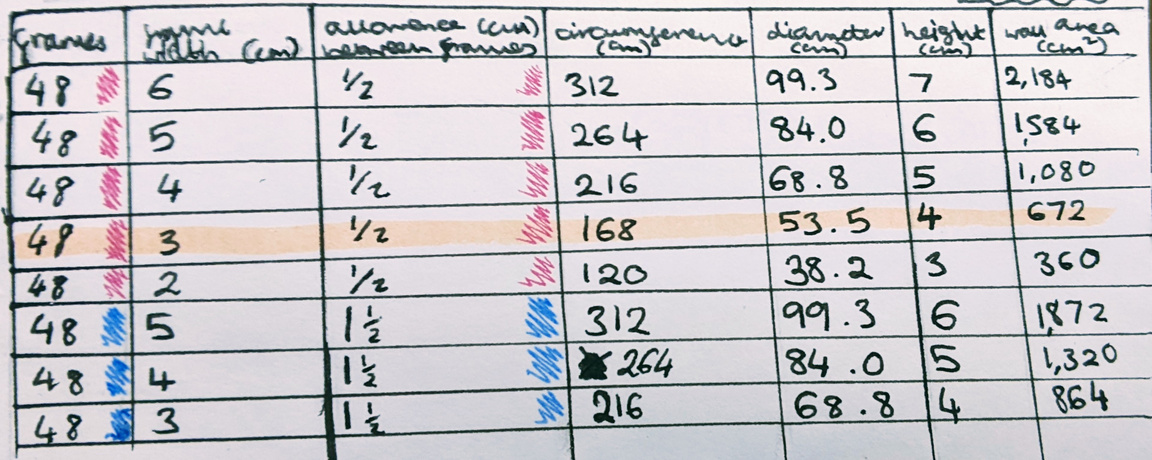 frames frame width (cm) allowance (cm) between frames circumference (cm) diameter (cm) height (cm) wall area (cm²)
48 6 ½ 312 99.3 7 2,184
48 5 ½ 264 84.0 6 1,584
48 4 ½ 216 68.8 5 1,080
48 3 ½ 168 53.5 4 672
48 2 ½ 120 38.2 3 360
48 5 1½ 312 99.3 6 1,872
48 4 1½ 264 84.0 5 1,320
48 3 1½ 216 68.8 4 864